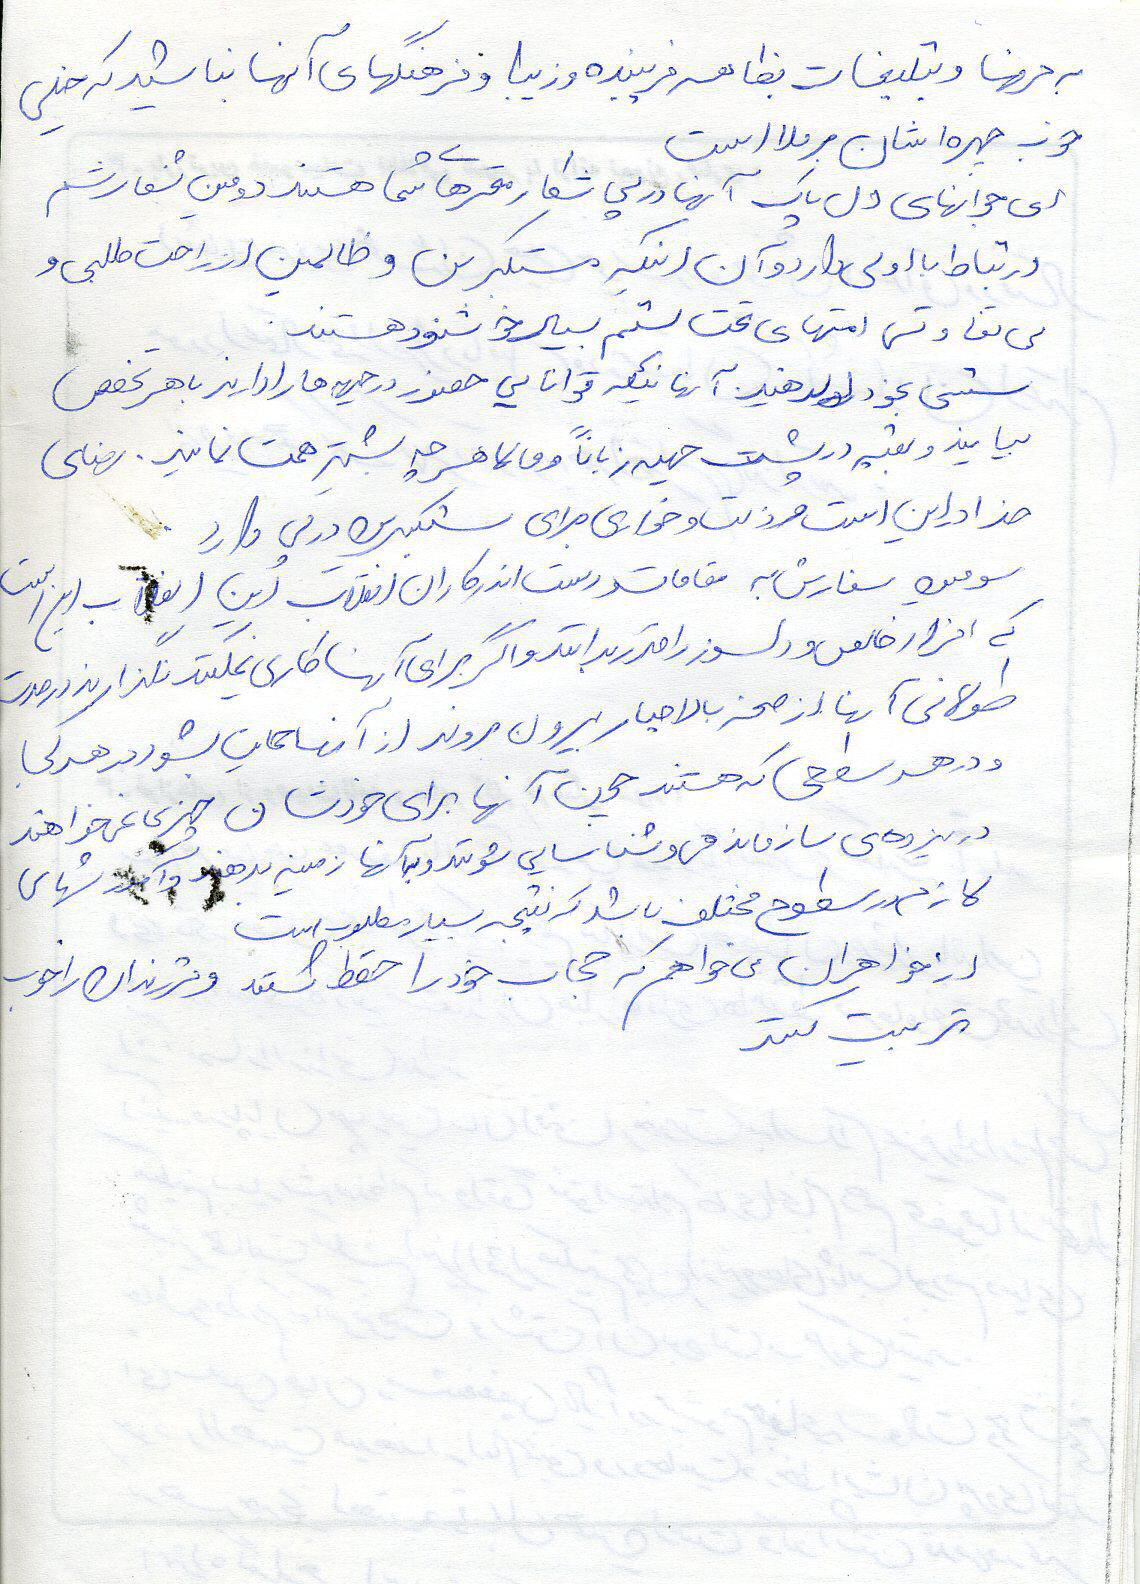 به حرفها و تبلیغات بظاهر فریبنده و زیبا و فرهنگهای آنها نباشید که خیلی
خوب چهره اشان برملا است
ای جوانهای دل پاک آنها در پی شکار مغزهای شما هستند دومین شعار شم
ارتباط با اولی دارد و آن اینکه مستکبرین و ظالمین از راحت طلبی و
بی تفاوتی امتهای تحت ستم بسیار خشنود هستند.
سستی بخود راه ندهید. آنهائیکه توانایی حضور در جبهه ها را دارند با هر تخصص
بیایند و بقیه در پشت جبهه زباناً و مالا هر چه بیشتر همت نمایند. رضای
خدا در این است و ذلت و خواری برای مستکبرین در پی دارد.
سومین سفارش به مقامات و دست اندرکاران انقلاب این انقلاب این است
که افراد خالص و دلسوز را قدر بدانند و اگر برای آنها کاری نمیکنند نگذارند در مدت
طولانی آنها از صحنه بالاجبار بیرون بروند از آنها حمایت بشود در هر کجا
و در هر سطحی که هستند چون آنها برای خودشان چیزی نمی خواهند
در نیروهای سازماندهی و شناسایی شوند و به آنها زمینه بدهند و آموزشهای
لازم در سطوح مختلف باشد که نتیجه بسیار مطلوب است
از خواهران می خواهم که حجاب خود را حفظ کنند و فرزندان را خوب
تربیت کنند